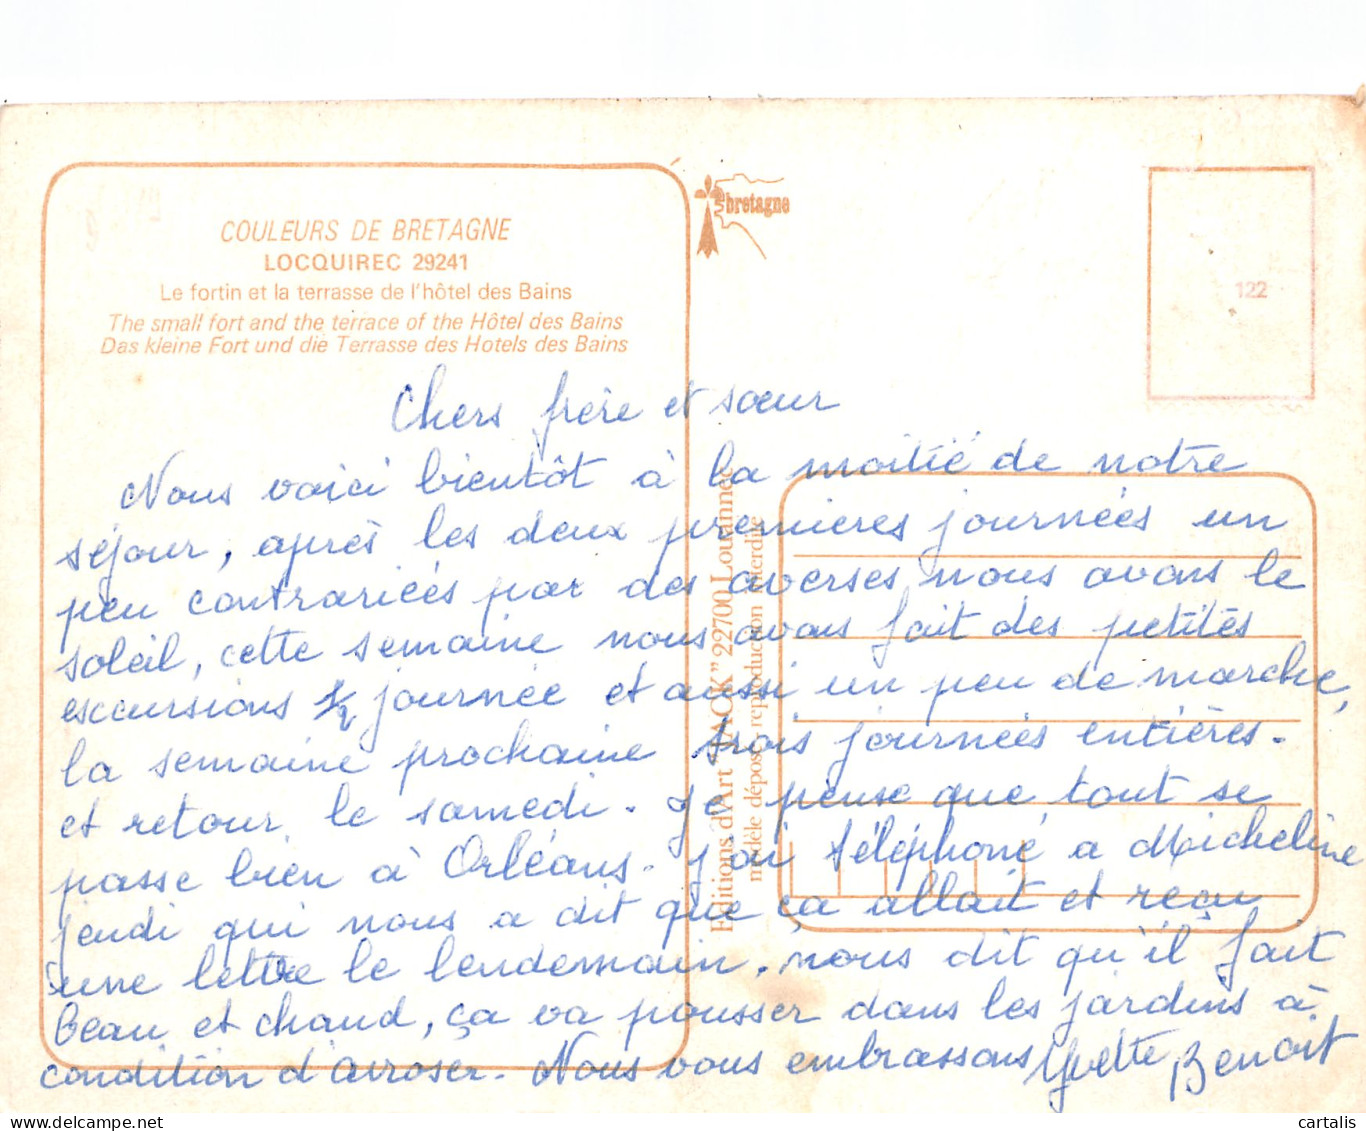 COULEURS DE BRETAGNE
LOCQUIREC 29241
Le fortin et la terrasse de l'hôtel des Bains
The small fort and the terrace of the Hôtel des Bains
Das kleine Fort und die Terrasse des Hotels des Bains
bretagne
122
Editions d'Art "JACK" 22700 Louannec
modèle déposé reproduction interdite
Chers frère et sœur
Nous voici bientôt à la moitié de notre
séjour, après les deux premières journées un
peu contrariées par des averses nous avons le
soleil, cette semaine nous avons fait des petites
excursions 1/2 journée et aussi un peu de marche,
la semaine prochaine trois journées entières.
et retour le samedi. Je pense que tout se
passe bien à Orléans. J'ai téléphoné a Micheline
jeudi qui nous a dit que ça allait et reçu
une lettre le lendemain. nous dit qu'il fait
beau et chaud, ça va pousser dans les jardins à
condition d'arroser. Nous vous embrassons Yvette, Benoit
cartalis